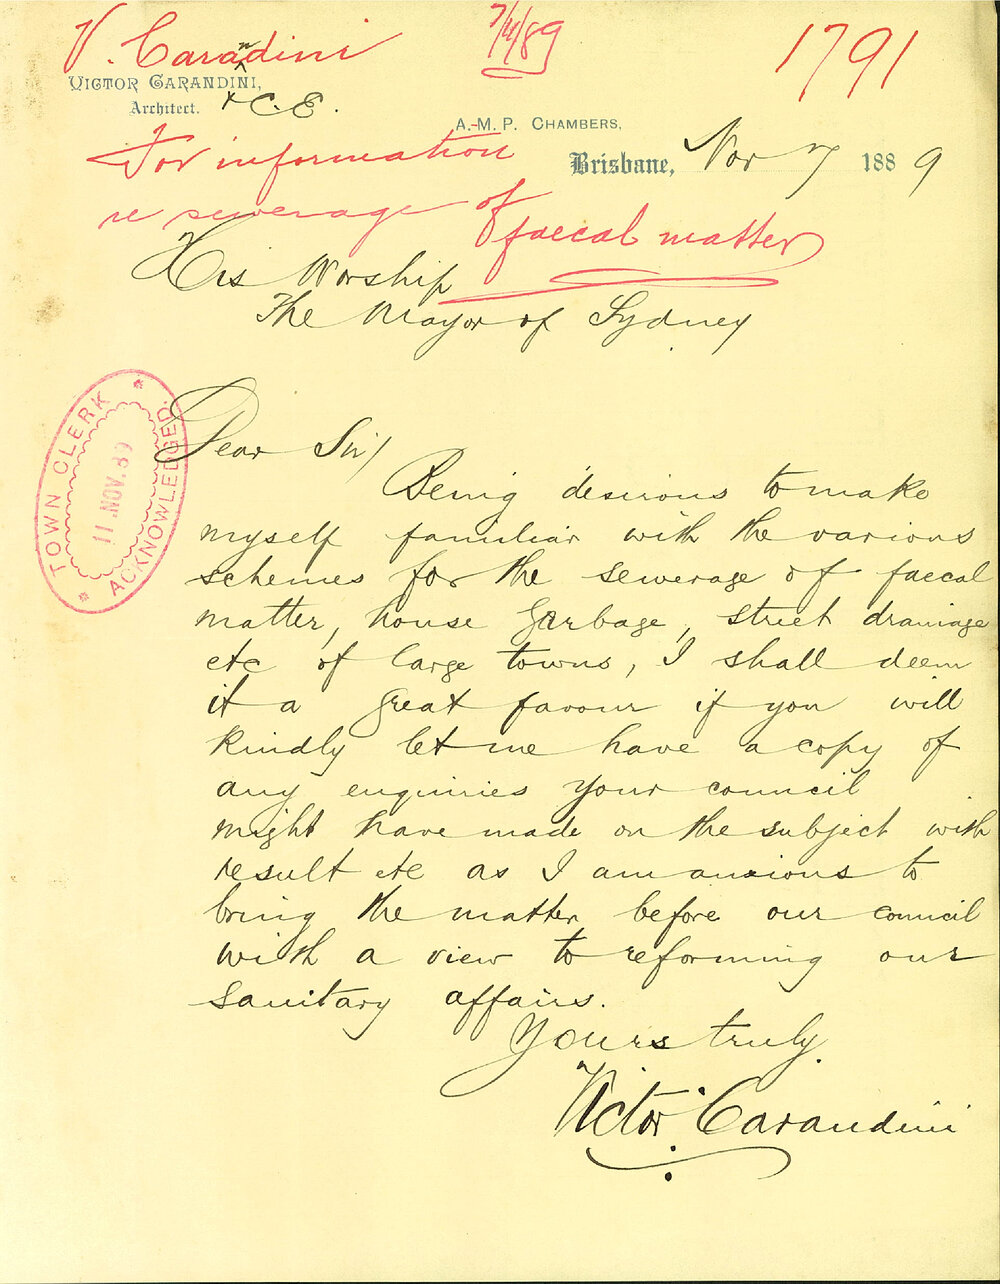 V. Carandini
7/11/89
1791
VICTOR CARANDINI,
Architect. & C.E.
A.-M. P. CHAMBERS,
For information
Brisbane, Nov 7 1889
re sewerage of
faecal matter
His Worship
The Mayor of Sydney
TOWN CLERK
11 NOV. 89
ACKNOWLEDGED.
Dear Sir/
Being desirous to make
myself familiar with the various
schemes for the sewerage of faecal
matter, house garbage, street drainage
etc of large towns, I shall deem
it a great favour if you will
kindly let me have a copy of
any enquiries your council
might have made on the subject with
result etc as I am anxious to
bring the matter before our council
with a view to reforming our
sanitary affairs.
Yours truly.
Victor Carandini